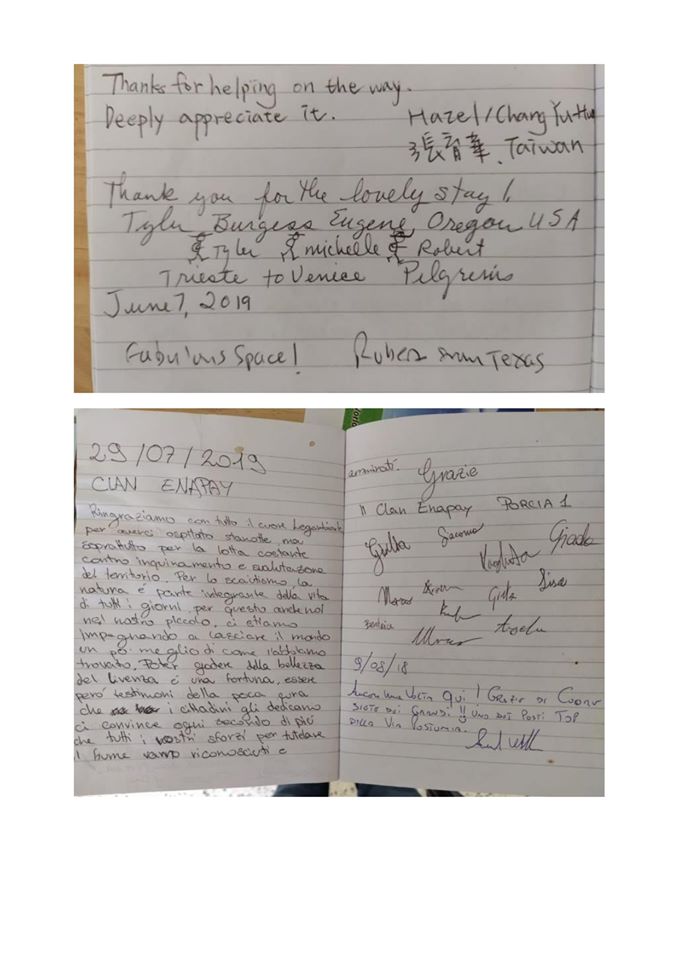 Thanks for helping on the way.
Deeply appreciate it.
Hazel/Chang Yu-Hua
張育華, Taiwan
Thank you for the lovely stay!
Tyler Burgess Eugene, Oregon USA
Tyler michelle Robert
Trieste to Venice Pilgrims
June 7, 2019
Fabulous Space! from Texas
29/07/2019
CLAN ENAPAY
Ringraziamo con tutto il cuore Legambiente
per averci ospitato stanotte, ma
soprattutto per la lotta costante
contro inquinamento e
del territorio. Per lo scoutismo, la
natura è parte integrante della vita
di tutti i giorni, per questo anche noi
nel nostro piccolo, ci stiamo
impegnando a lasciare il mondo
un po' meglio di come l'abbiamo
trovato. Poter godere della bellezza
del Livenza è una fortuna, essere
però testimoni della poca cura
che i cittadini gli dedicano
ci convince ogni secondo di più
che tutti i vostri sforzi per tutelare
il fiume vanno riconosciuti e
ammirati. Grazie
Il Clan Enapay PORCIA 1
Giulia Giacomo
Giada
Marco Lisa
9/08/18
Ancora una volta qui! Grazie di cuore
siete dei grandi!! Uno dei posti top
della Via Postumia.